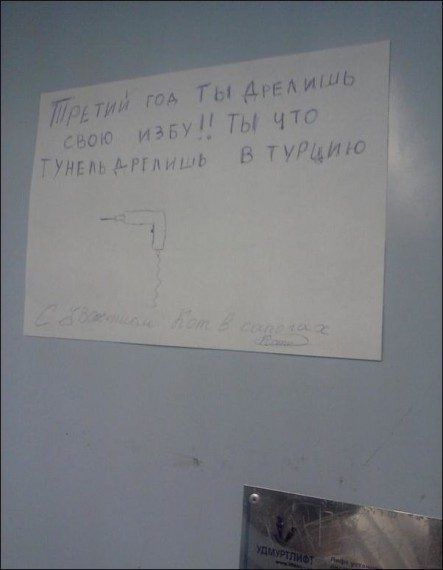 Третий год ты дрелишь
свою избу!! Ты что
тунель дрелишь в Турцию
С уважением Кот в сапогах
УДМУРТЛИФТ